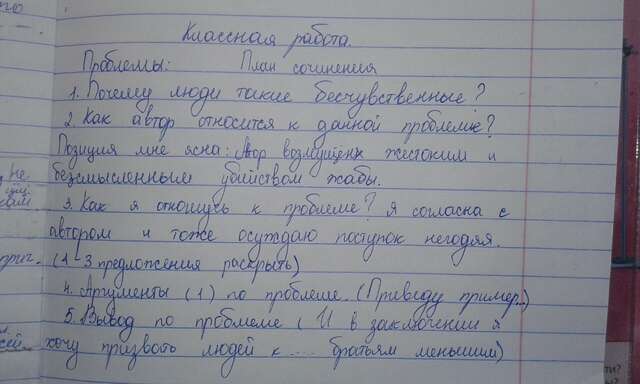 Классная работа.
Проблемы: План сочинения
1. Почему люди такие бесчувственные?
2. Как автор относится к данной проблеме?
Позиция мне ясна: Автор возмущён жестоким и
безмысленным убийством жабы.
3. Как я отношусь к проблеме? Я согласна с
автором и тоже осуждаю поступок негодяя.
(1-3 предложения раскрыть)
4. Аргументы (1) по проблеме. (Приведу пример..)
5. Вывод по проблеме ( И в заключении я
хочу призвать людей к .... братьям меньшим)